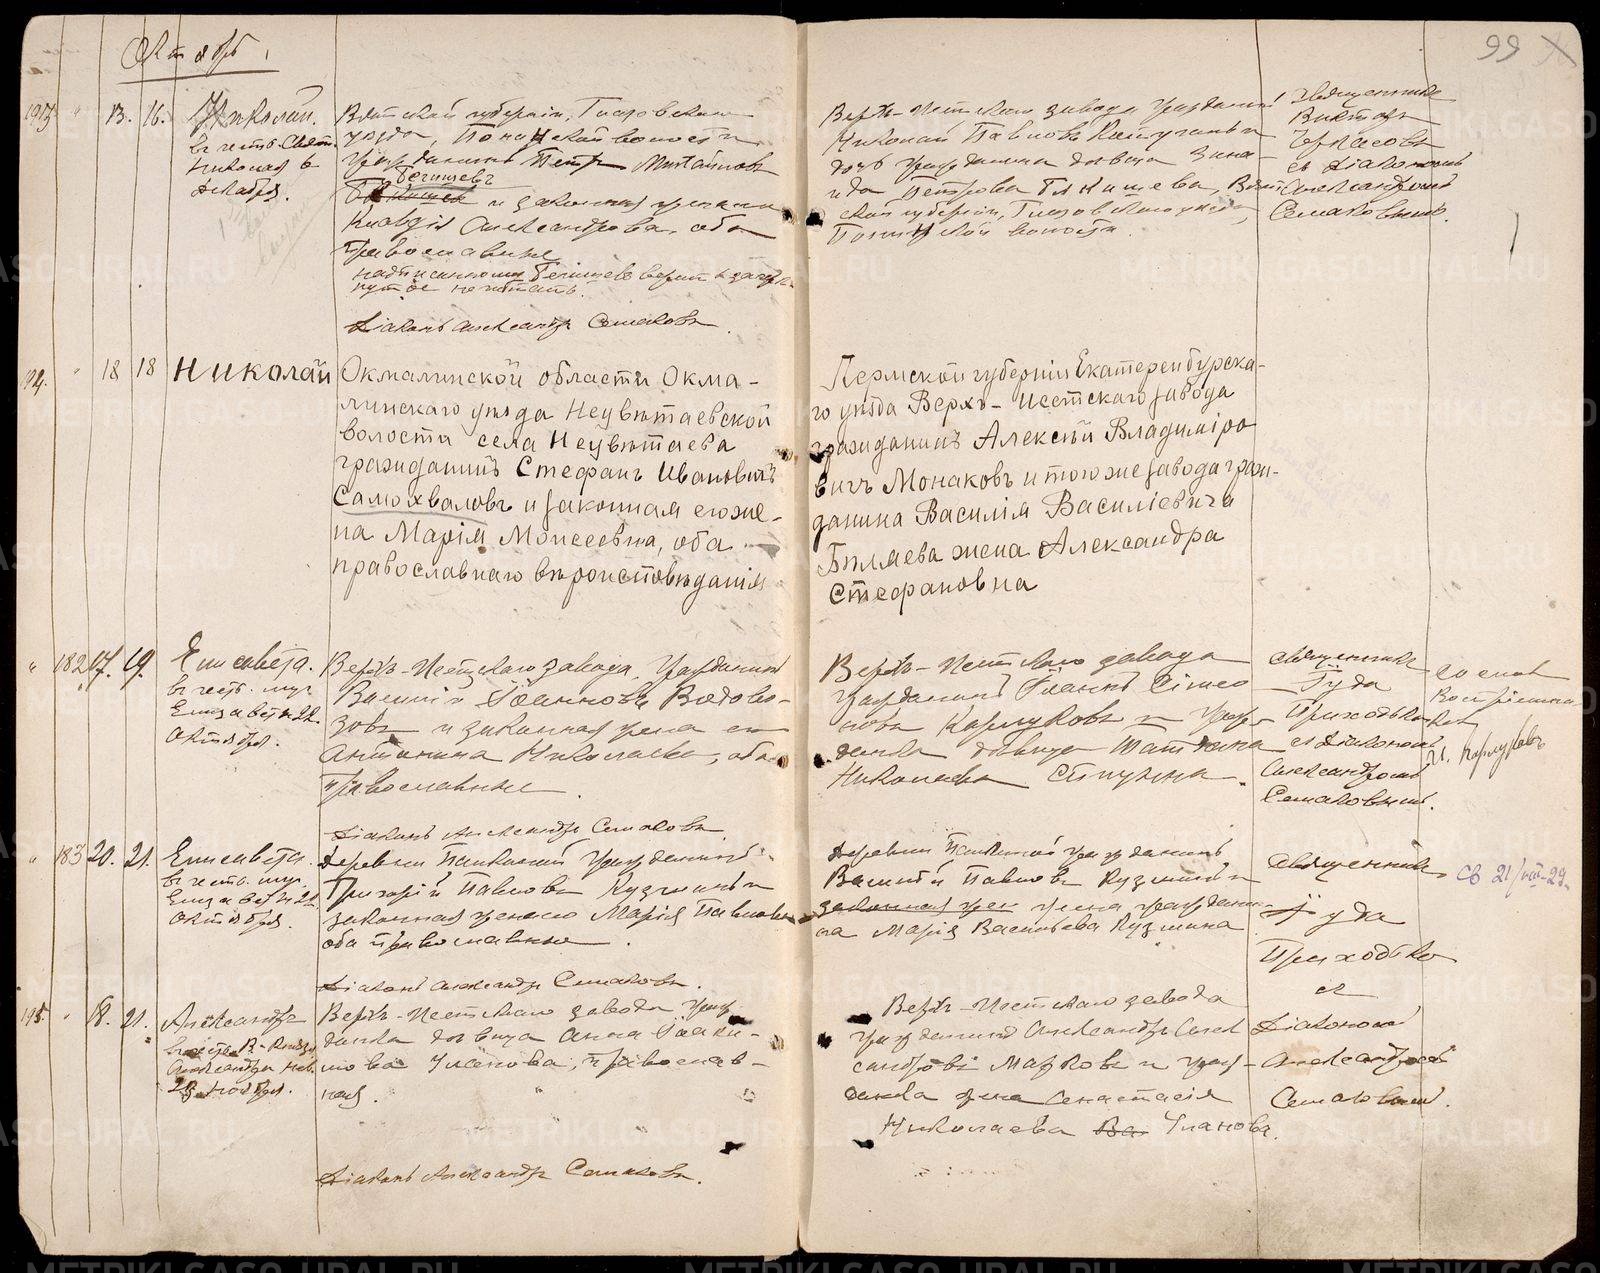 Октябрь.
99
193 " 13. 16. Николай.
въ честь Свят.
Николая 6
декабря.
Вятской губерніи, Глазовскаго
уѣзда, Понинской волости
гражданинъ Петръ Михайловъ
Бегишевъ
и законная жена
Клавдія Александрова, оба
православные
надписанному Бегишевъ вѣрить а зачерк-
нутое не читать.
Діаконъ Александръ Семаковъ.
Верхъ-Исетскаго завода гражданинъ
Николай Павловъ и
дочь гражданина дѣвица Зина-
ида Петрова Бегишева, Вят-
ской губерніи, Глазовскаго уѣзда,
Понинской волости.
Священникъ
Викторъ
Черкасовъ
съ діакономъ
Александромъ
Семаковымъ.
194. " 18 18 Николай
Окмалинской области Окма-
линскаго уѣзда Неувѣтаевской
волости села Неувѣтаева
гражданинъ Стефанъ Ивановичъ
Самохваловъ и законная его же-
на Марія Моисеевна, оба
православнаго вѣроисповѣданія
Пермской губерніи Екатеринбургска-
го уѣзда Верхъ-Исетскаго завода
гражданинъ Алексѣй Владиміро
вичъ Монаковъ и того же завода граж-
данина Василія Васильевича
Бѣляева жена Александра
Стефановна
" 182 17. 19. Елисавета.
въ честь муч.
Елизаветы 22.
октября.
Верхъ-Исетскаго завода, гражданинъ
Василій Іоанновъ Водово-
зовъ и законная жена его
Антонина Николаева, оба
православные.
Діаконъ Александръ Семаковъ.
Верхъ-Исетскаго завода
гражданинъ Іоаннъ Симео
новъ Кармуковъ и граж-
данка дѣвица Татіана
Николаева
Священникъ
Іуда
Приходько
съ діакономъ
Александромъ
Семаковымъ.
" 183 20. 21. Елисавета.
въ честь муч.
Елизаветы 22
октября.
Деревни Палкиной гражданинъ
Григорій Павловъ Кузминъ и
законная жена его Марія Павлова
оба православные.
Діаконъ Александръ Семаковъ.
Деревни Палкиной гражданинъ
Василій Павловъ Кузминъ и
законная жен жена граждани-
на Марія Васильева Кузмина
Священникъ
Іуда
Приходько
съ
Діакономъ
Александромъ
Семаковымъ.
св 21/VIII-29.
195. " 18. 21. Александръ
въ честь В.-Князя
Александра Нев.
23 ноября.
Верхъ-Исетскаго завода граж
данка дѣвица Анна Іоаки-
мова Уланова, православ-
ная.
Діаконъ Александръ Семаковъ.
Верхъ-Исетскаго завода
гражданинъ Александръ Алек
сандровъ Марковъ и граж-
данка жена Анастасія
Николаева Ва Уланова.
METRIKI.GASO-URAL.RU